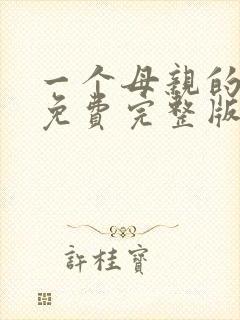 一个母親的
免費完整版
許桂寶